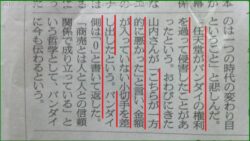 のは一つの時代の変わり目
ということ」と悲しんだ。
任天堂がバンダイの権利
を過って侵害したことがあ
ったという。おわびにきた
山内さんが「こちらが一方
的に悪かった」と言い、金額
が入っていない小切手を差
し出したという。バンダイ
側は「0」と書いて返した。
「商売とは人と人との信頼
関係で成り立っている」と
いう哲学として、バンダイ
に今も伝わるという。